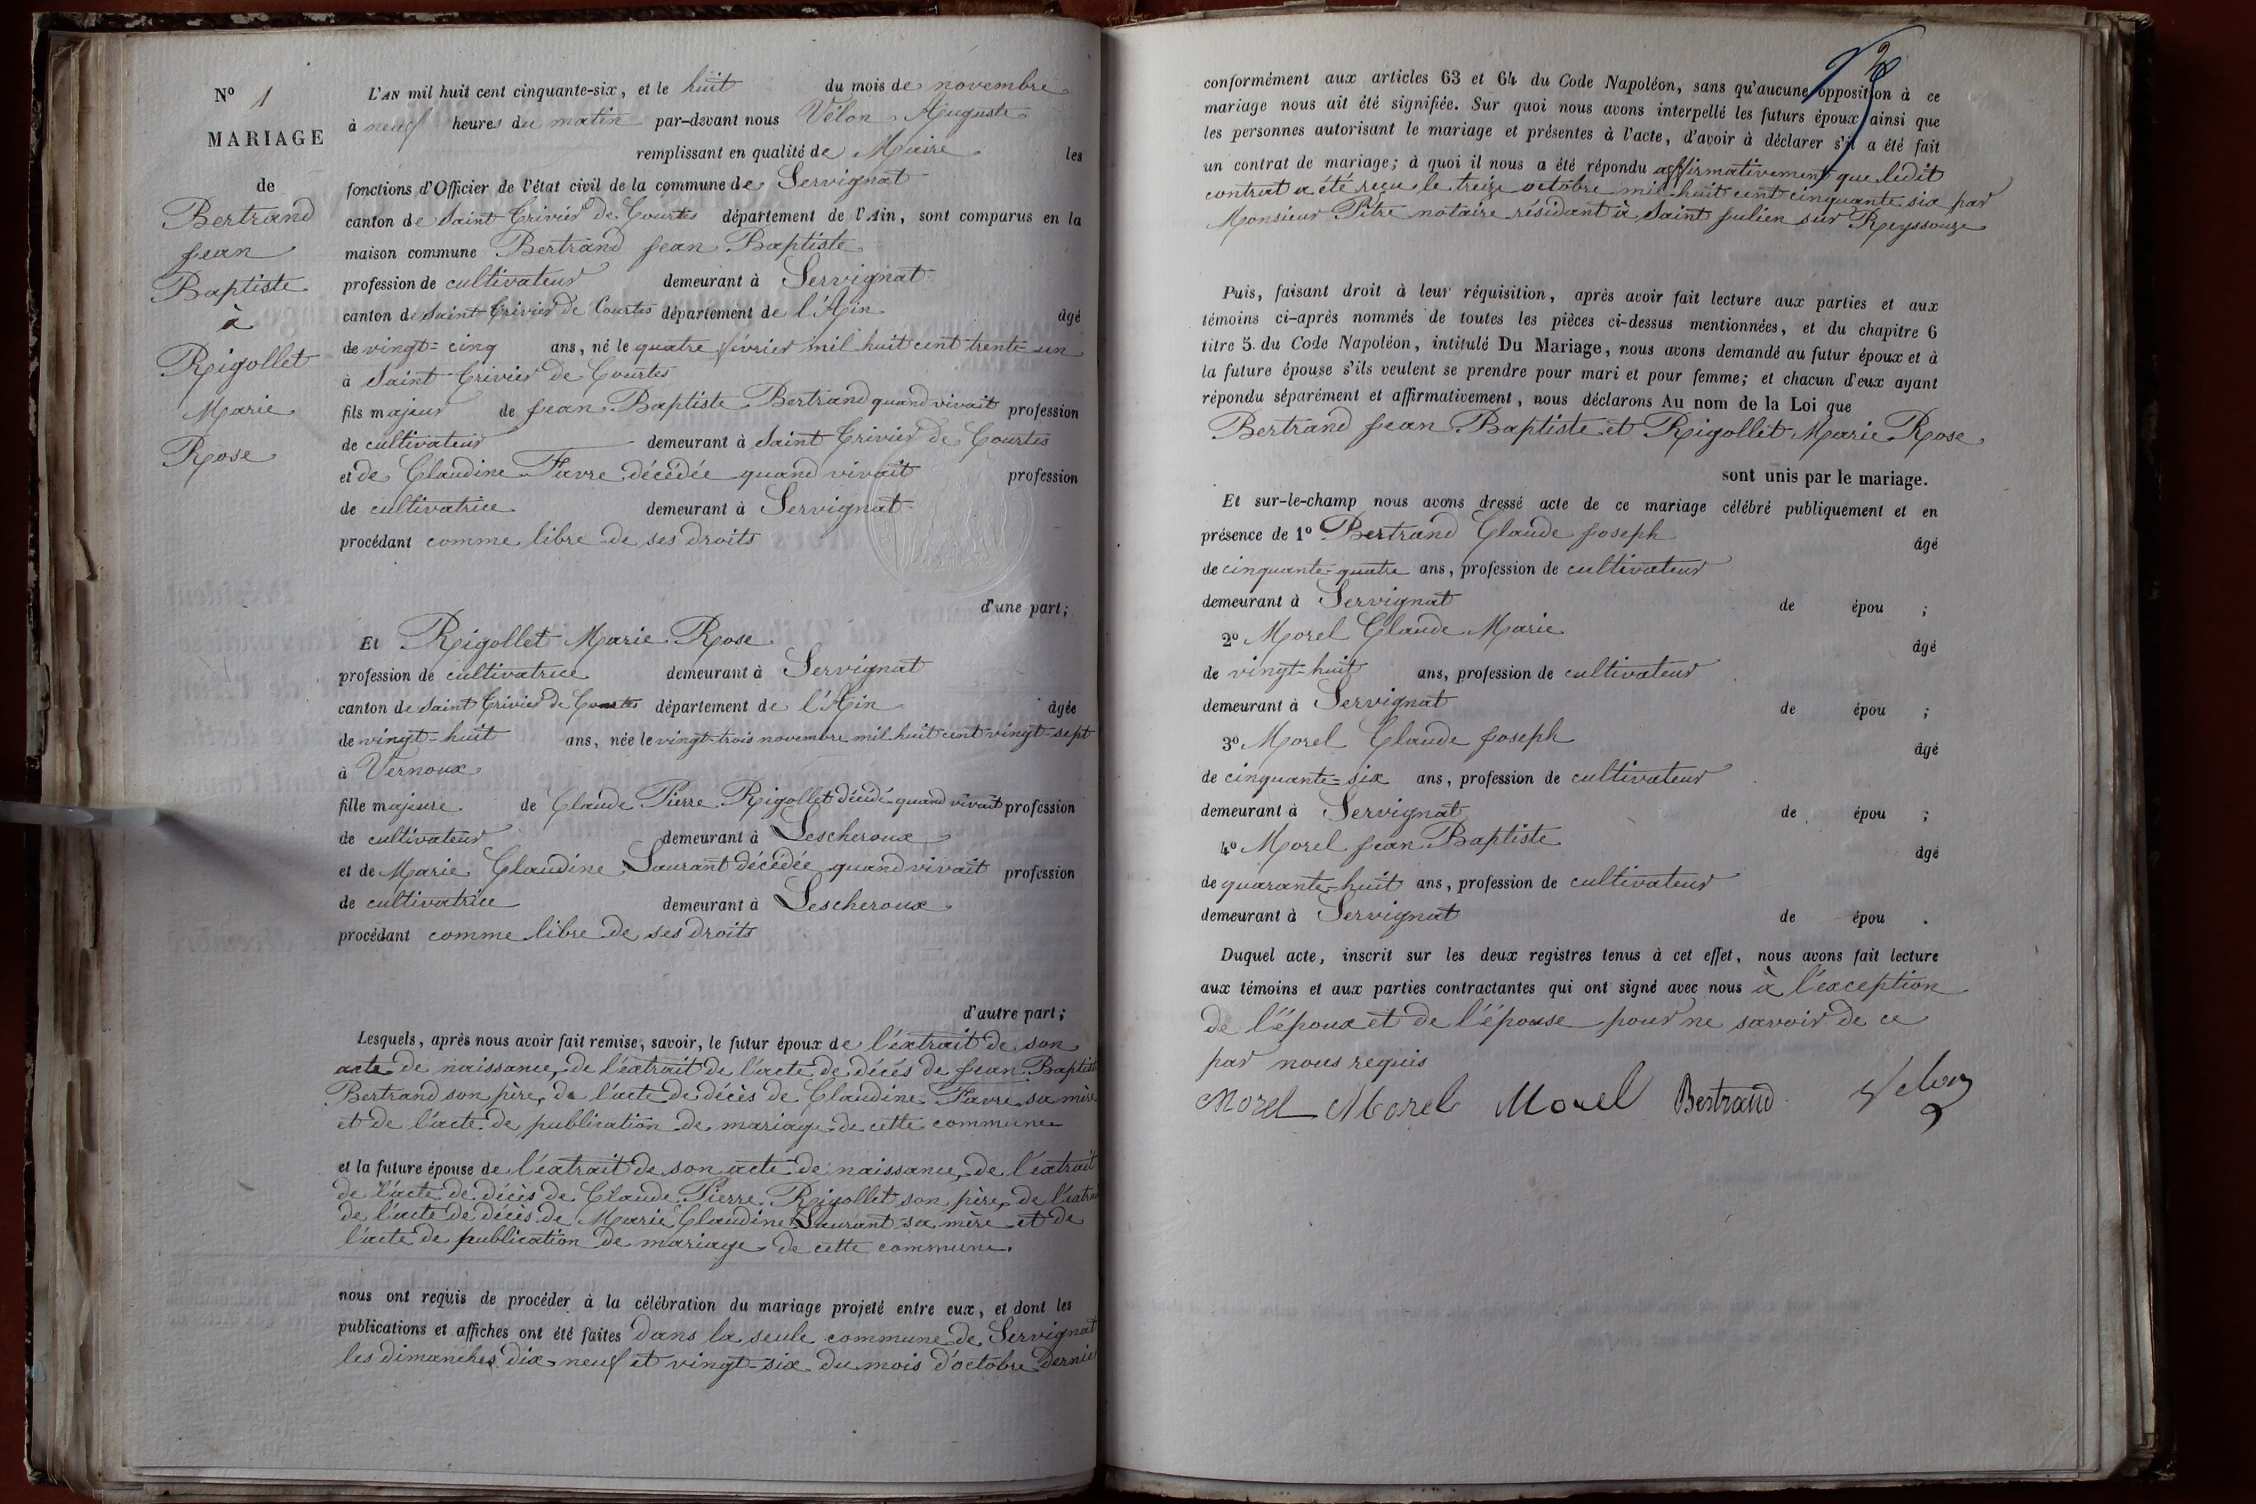 N° 1
MARIAGE
de
Bertrand
Jean
Baptiste
à
Rigollet
Marie
Rose
L'AN mil huit cent cinquante-six, et le huit du mois de novembre
à neuf heures du matin par-devant nous Vélon Auguste
remplissant en qualité de Maire les
fonctions d'Officier de l'état civil de la commune de Servignat
canton de Saint Trivier de Courtes département de l'Ain, sont comparus en la
maison commune Bertrand Jean Baptiste
profession de cultivateur demeurant à Servignat
canton de Saint Trivier de Courtes département de l'Ain âgé
de vingt-cinq ans, né le quatre février mil huit cent trente un
à Saint Trivier de Courtes
fils majeur de Jean Baptiste Bertrand quand vivait profession
de cultivateur demeurant à Saint Trivier de Courtes
et de Claudine Favre décédée quand vivait profession
de cultivatrice demeurant à Servignat
procédant comme libre de ses droits
d'une part;
Et Rigollet Marie Rose
profession de cultivatrice demeurant à Servignat
canton de Saint Trivier de Courtes département de l'Ain âgée
de vingt-huit ans, née le vingt-trois novembre mil huit cent vingt-sept
à Vernoux
fille majeure de Claude Pierre Rigollet décédé quand vivait profession
de cultivateur demeurant à Lescheroux
et de Marie Claudine Laurant décédée quand vivait profession
de cultivatrice demeurant à Lescheroux
procédant comme libre de ses droits
d'autre part;
Lesquels, après nous avoir fait remise, savoir, le futur époux de l'extrait de son
acte de naissance, de l'extrait de l'acte de décès de Jean Baptiste
Bertrand son père, de l'acte de décès de Claudine Favre sa mère
et de l'acte de publication de mariage de cette commune
et la future épouse de l'extrait de son acte de naissance, de l'extrait
de l'acte de décès de Claude Pierre Rigollet son père, de l'extrait
de l'acte de décès de Marie Claudine Laurant sa mère et de
l'acte de publication de mariage de cette commune.
nous ont requis de procéder à la célébration du mariage projeté entre eux, et dont les
publications et affiches ont été faites dans la seule commune de Servignat
les dimanches dix-neuf et vingt-six du mois d'octobre dernier
conformément aux articles 63 et 64 du Code Napoléon, sans qu'aucune opposition à ce
mariage nous ait été signifiée. Sur quoi nous avons interpellé les futurs époux, ainsi que
les personnes autorisant le mariage et présentes à l'acte, d'avoir à déclarer s'il a été fait
un contrat de mariage; à quoi il nous a été répondu affirmativement que ledit
contrat a été reçu le treize octobre mil huit cent cinquante six par
Monsieur Pitre notaire résidant à Saint Julien sur Reyssouze
Puis, faisant droit à leur réquisition, après avoir fait lecture aux parties et aux
témoins ci-après nommés de toutes les pièces ci-dessus mentionnées, et du chapitre 6
titre 5 du Code Napoléon, intitulé Du Mariage, nous avons demandé au futur époux et à
la future épouse s'ils veulent se prendre pour mari et pour femme; et chacun d'eux ayant
répondu séparément et affirmativement, nous déclarons Au nom de la Loi que
Bertrand Jean Baptiste et Rigollet Marie Rose
sont unis par le mariage.
Et sur-le-champ nous avons dressé acte de ce mariage célébré publiquement et en
présence de 1° Bertrand Claude Joseph âgé
de cinquante-quatre ans, profession de cultivateur
demeurant à Servignat de épou ;
2° Morel Claude Marie âgé
de vingt-huit ans, profession de cultivateur
demeurant à Servignat de épou ;
3° Morel Claude Joseph âgé
de cinquante-six ans, profession de cultivateur
demeurant à Servignat de épou ;
4° Morel Jean Baptiste âgé
de quarante-huit ans, profession de cultivateur
demeurant à Servignat de épou .
Duquel acte, inscrit sur les deux registres tenus à cet effet, nous avons fait lecture
aux témoins et aux parties contractantes qui ont signé avec nous à l'exception
de l'époux et de l'épouse pour ne savoir de ce
par nous requis
Morel Morel Morel Bertrand Velon